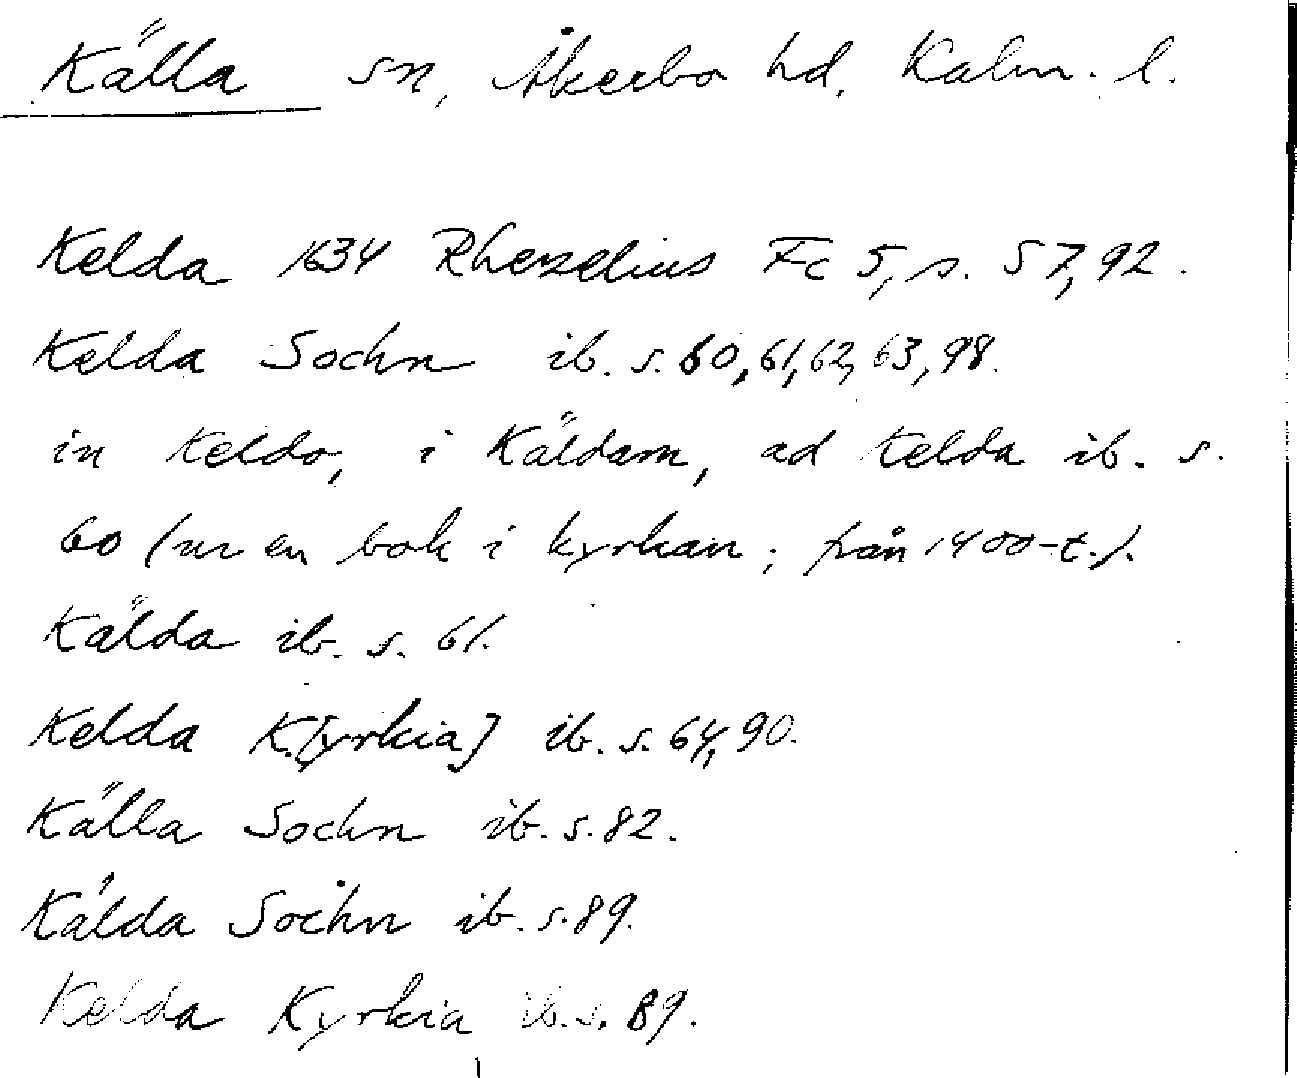 Källa sn, Åkerbo hd, Kalm. l.
Kelda 1634 Rhezelius Fc 5, s. 57, 92.
Kelda Sochn ib. s. 60, 61, 62, 63, 98.
in Keldo, i Käldam, ad Kelda ib. s.
60 (ur en bok i kyrkan; från 1400-t.).
Källda ib. s. 61.
Kelda K[yrkia] ib. s. 64, 90.
Källa Sochn ib. s. 82.
Kälda Sochn ib. s. 89.
Kelda Kyrkia ib. s. 89.